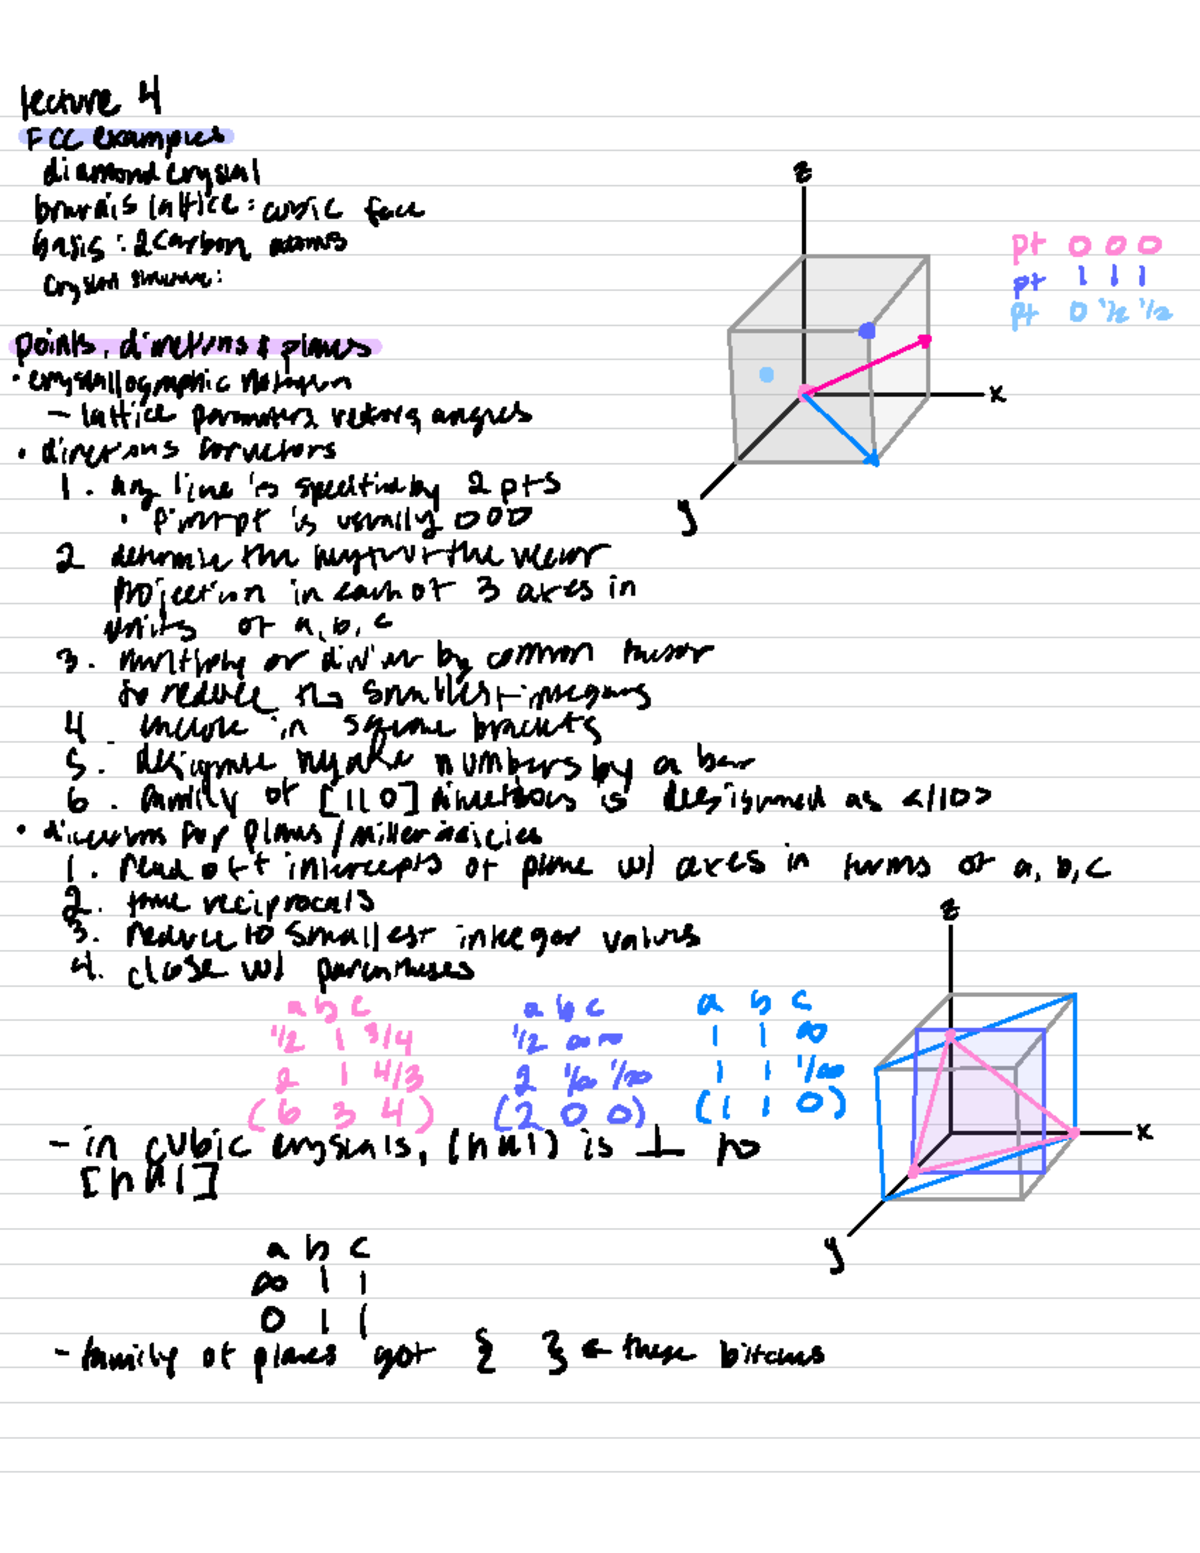 lecture 4
FCC examples
diamond crystal
bravais lattice: cubic face
basis: 2 carbon atoms
crystal structure:
z
pt 0 0 0
pt 1 1 1
pt 0 1/2 1/2
x
y
points, directions & planes
• crystallographic notation
- lattice parameters, vectors, angles
• directions for vectors
1. any line is specified by 2 pts
• first pt is usually 000
2. determine the length of the vector
projection in each of 3 axes in
units of a, b, c
3. multiply or divide by common factor
to reduce to smallest integers
4. enclose in square brackets
5. designate negative numbers by a bar
6. family of [110] directions is designated as <110>
• directions for planes / miller indicies
1. read off intercepts of plane w/ axes in terms of a, b, c
2. take reciprocals
3. reduce to smallest integer values
4. close w/ parentheses
z
a b c
1/2 1 3/4
2 1 4/3
(6 3 4)
a b c
1/2 ∞ ∞
2 1/∞ 1/∞
(2 0 0)
a b c
1 1 ∞
1 1 1/∞
(1 1 0)
x
y
- in cubic crystals, (hkl) is ⊥ to
[hkl]
a b c
∞ 1 1
0 1 1
- family of planes get { } ← these bitches